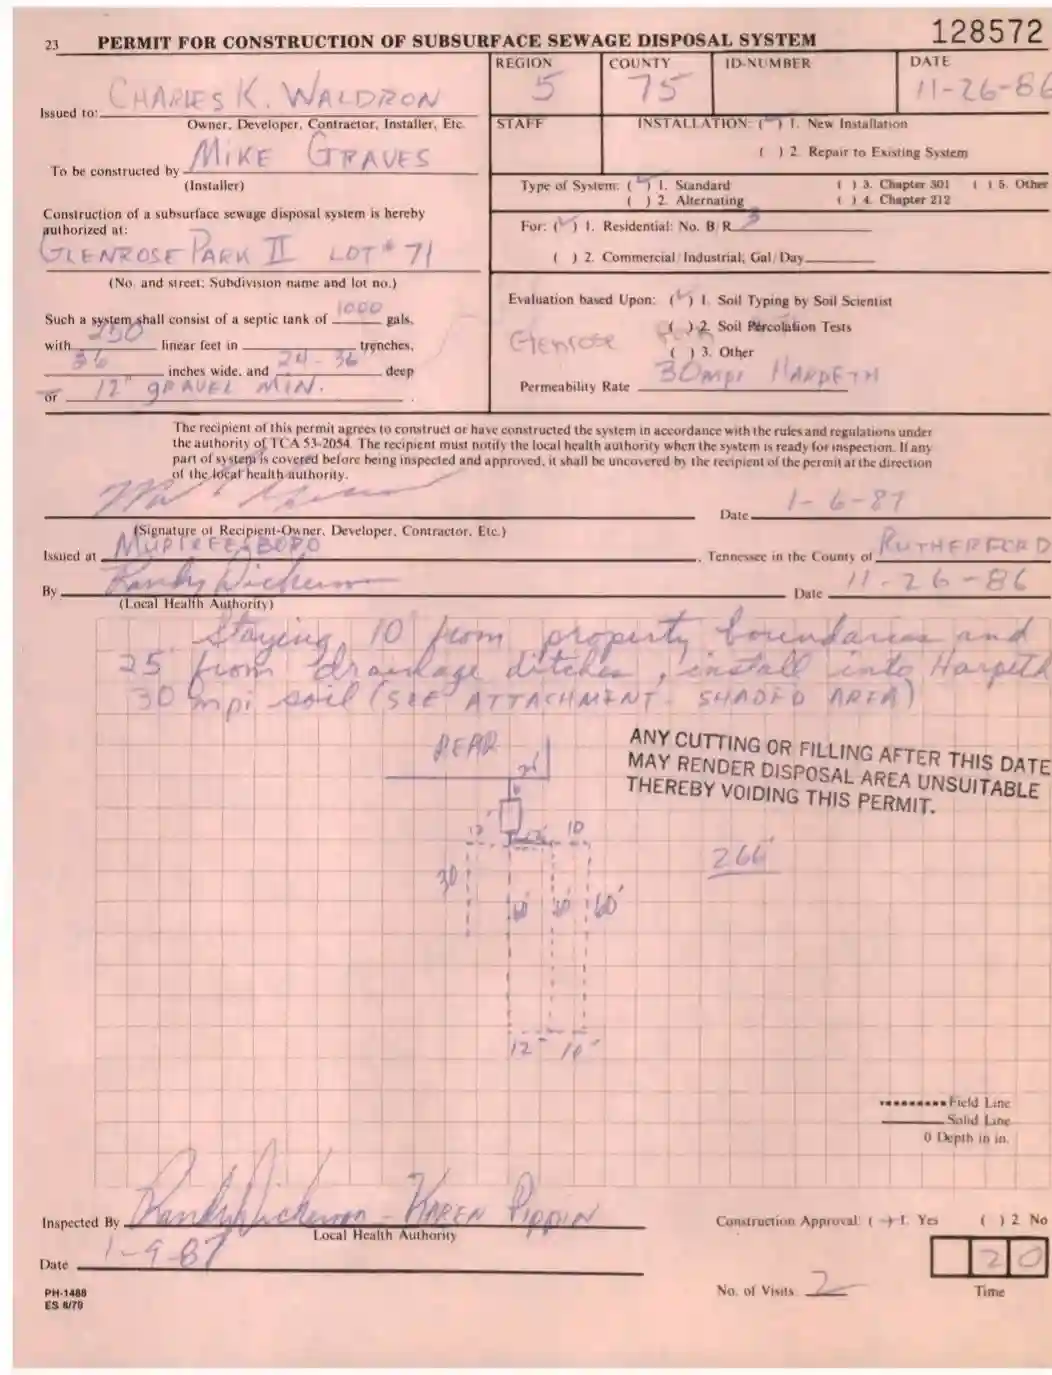 23 PERMIT FOR CONSTRUCTION OF SUBSURFACE SEWAGE DISPOSAL SYSTEM 128572
REGION COUNTY ID-NUMBER DATE
5 75 11-26-86
Issued to: CHARLES K. WALDRON
Owner, Developer, Contractor, Installer, Etc.
To be constructed by MIKE GRAVES
(Installer)
Construction of a subsurface sewage disposal system is hereby
authorized at:
GLENROSE PARK II LOT # 71
(No. and street; Subdivision name and lot no.)
Such a system shall consist of a septic tank of 1000 gals,
with 250 linear feet in trenches,
36 inches wide, and 24-36" deep
or 12" gravel MIN.
STAFF
INSTALLATION: (✓) 1. New Installation
( ) 2. Repair to Existing System
Type of System: (✓) 1. Standard ( ) 3. Chapter 301 ( ) 5. Other
( ) 2. Alternating ( ) 4. Chapter 212
For: (✓) 1. Residential: No. B/R 3
( ) 2. Commercial/Industrial; Gal/Day
Evaluation based Upon: (✓) 1. Soil Typing by Soil Scientist
( ) 2. Soil Percolation Tests
Glenrose
( ) 3. Other
Permeability Rate 30mpi HARPETH
The recipient of this permit agrees to construct or have constructed the system in accordance with the rules and regulations under
the authority of TCA 53-2054. The recipient must notify the local health authority when the system is ready for inspection. If any
part of system is covered before being inspected and approved, it shall be uncovered by the recipient of the permit at the direction
of the local health authority.
Date 1-6-87
(Signature of Recipient-Owner, Developer, Contractor, Etc.)
Issued at MURFREESBORO, Tennessee in the County of RUTHERFORD
By Randy Dickerson Date 11-26-86
(Local Health Authority)
Staying 10' from property boundaries and
25' from drainage ditches, install into Harpeth
30 mpi soil (SEE ATTACHMENT- SHADED AREA)
REAR
ANY CUTTING OR FILLING AFTER THIS DATE
MAY RENDER DISPOSAL AREA UNSUITABLE
THEREBY VOIDING THIS PERMIT.
10
266'
30
60'
12" 10'
Field Line
Solid Line
0 Depth in in.
Inspected By Randy Dickerson - KAREN PIPPIN
Local Health Authority
Construction Approval: ( ) 1. Yes ( ) 2 No
Date 1-9-87
2 0
No. of Visits 2 Time
PH-1488
ES 8/79